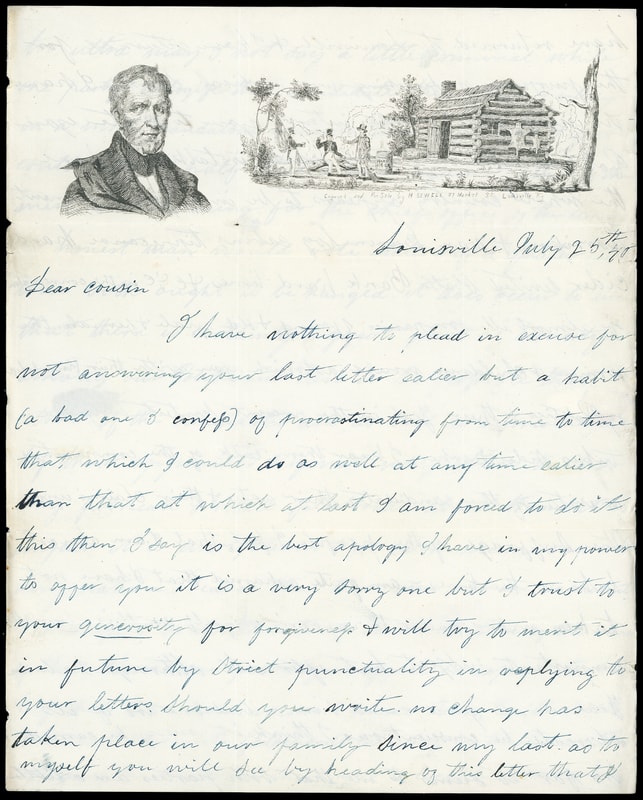 Louisville July 25th
Dear cousin
I have nothing to plead in excuse for
not answering your last letter ealier but a habit
(a bad one I confess) of procrastinating from time to time
that, which I could do as well at any time ealier
than that at which at last I am forced to do it
this then I say is the best apology I have in my power
to offer you it is a very sorry one but I trust to
your generosity for forgiveness & will try to merit it
in future by strict punctuality in replying to
your letters should you write. no change has
taken place in our family since my last. as to
myself you will see by heading of this letter that I